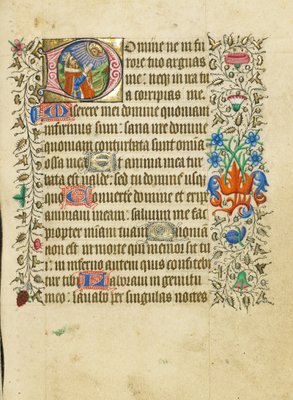 Domine ne in fu
rore tuo arguas
me: neqz in ira tu
a corripias me
Miserere mei domine quoniam
infirmus sum: sana me domine
quoniam conturbata sunt omia
ossa mea Et anima mea tur
bata est valde: sed tu domine usqz
quo Conuerte domine et eripe
animam meam: saluum me fac
propter miam tuam Quoniam
non est in morte qui memor sit tu
i: in inferno autem quis confitebi
tur tibi Laboraui in gemitu
meo: lauabo per singulas noctes